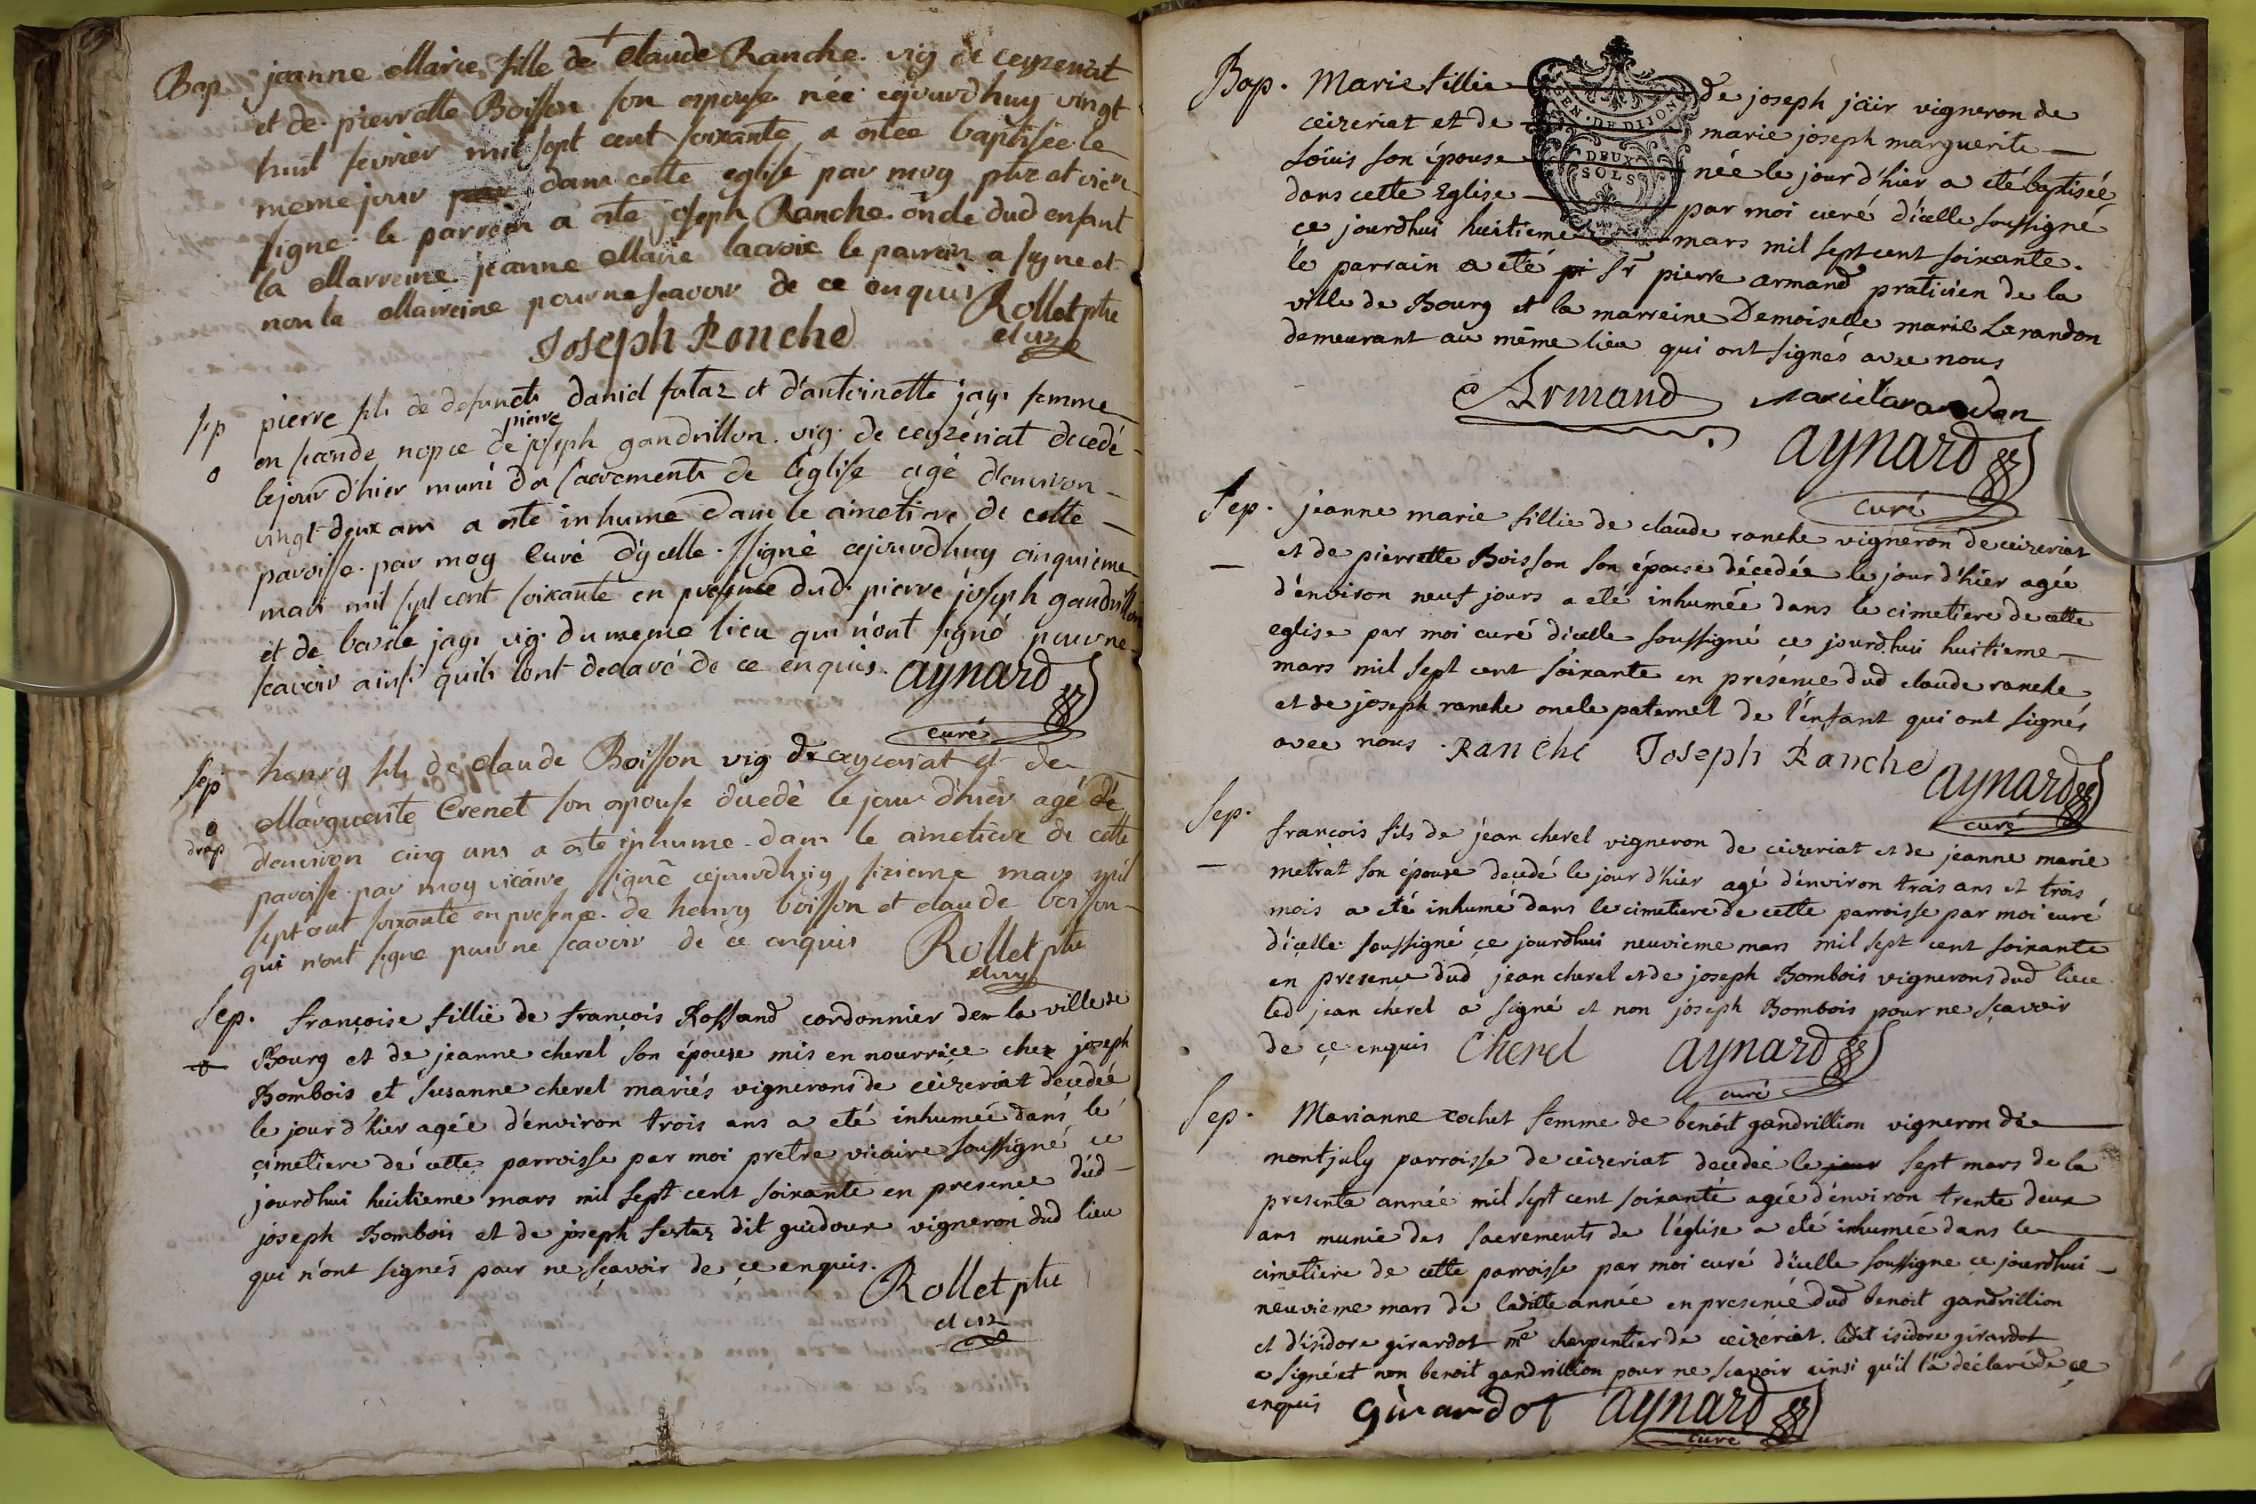 Bap. jeanne Marie fille de claude Ranche vig de ceyzeriat
et de pierrette Boisson son espouse née cejourdhuy vingt
huit fevrier mil sept cent soixante a estee baptisée le
meme jour par dans cette eglise par moy ptre et vic
signe le parrein a este joseph Ranche oncle dud enfant
la Marreine jeanne Marie lacroix le parrein a signe et
non la Marreine pour ne scavoir de ce enquis Rollet ptre
et vic
Joseph Ranche
Sep pierre fils de defuncts daniel futaz et d'antoinette jay femme
pierre
en seconde nopce de joseph gandrillon vig. de ceyzériat decedé
o le jour d'hier muni des sacrements de l'église agé d'environ
vingt deux ans a este inhume dans le cimetiere de cette
paroisse par moy curé d'ycelle ssigné cejourdhuy cinquieme
mars mil sept cent soixante en presence dud. pierre joseph gandrillon
et de jay vig. du meme lieu qui n'ont signé pour ne
scavoir ainsi quils l'ont declaré de ce enquis. aynard
curé
Sep henry fils de claude Boisson vig de ceyzeriat et de
o Marguerite Crenet son espouse decedé le jour d'hier agé de
drap
d'environ cinq ans a este inhume dans le cimetiere de cette
paroisse par moy vicaire ssigné cejourdhuy sixieme mars mil
sept cent soixante en presence de henry boisson et claude boisson
qui n'ont signe pour ne scavoir de ce enquis Rollet ptre
et vic
Sep. françoise fillie de françois Rossand cordonnier de la ville de
o Bourg et de jeanne cherel son épouse mis en nourriçe chez joseph
Bombois et susanne cherel mariés vignerons de ceizeriat decedée
le jour d'hier agée d'environ trois ans a eté inhumée dans le
çimetiere de cette parroisse par moi pretre vicaire soussigné ce
jourdhui huitieme mars mil sept cent soixante en presence dud
joseph Bombois et de joseph dit guidoux vigneron dud lieu
qui n'ont signés pour ne sçavoir de çe enquis.
Rollet ptre
et vic
Bap. Marie fillie de joseph jäir vigneron de
GEN. DE DIJON
DEUX SOLS
ceizeriat et de marie joseph marguerite
Loüis son épouse née le jour d'hier a eté baptisée
dans cette Eglise par moi curé d'icelle soussigné
çe jourdhui huitieme mars mil sept cent soixante.
le parrain a eté pi Sr pierre armand praticien de la
ville de Bourg et la marreine Demoiselle marie Larandon
demeurant au même lieu qui ont signés avec nous
Armand marie larandon
aynard
curé
Sep. jeanne marie fillie de claude ranche vigneron de ceizeriat
et de pierrette Boisson son épouse décedée le jour d'hier agée
d'énviron neuf jours a eté inhumée dans le cimetiere de cette
eglise par moi curé d'icelle soussigné ce jourdhui huitieme
mars mil sept cent soixante en présence dud claude ranche
et de joseph ranche oncle paternel de l'énfant qui ont signés
avec nous. Ranche Joseph Ranche aynard
curé
Sep. françois fils de jean cherel vigneron de ceizeriat et de jeanne marie
metrat son épouse decedé le jour d'hier agé d'énviron trois ans et trois
mois a eté inhumé dans le cimetiere de cette parroisse par moi curé
d'içelle soussigné çe jourdhui neuvieme mars mil sept cent soixante
en presence dud jean cherel et de joseph Bombois vignerons dud lieu
led jean cherel a signé et non joseph Bombois pour ne sçavoir
de çe enquis Cherel aynard
curé
Sep. Marianne rochet femme de benoit gandrillion vigneron de
montjuly parroisse de ceizeriat decedeé le jour sept mars de la
presente année mil sept cent soixante agée d'énviron trente deux
ans munie des sacrements de l'église a eté inhumée dans le
cimetiere de cette parroisse par moi curé d'icelle soussigne ce jourdhui
neuvieme mars de laditte année en presence dud benoit gandrillion
et d'isidore girardot me charpentier de ceizériat. ledit isidore girardot
a signé et non benoit gandrillion pour ne scavoir ainsi qu'il l'a déclaré de çe
enquis girardot aynard
curé